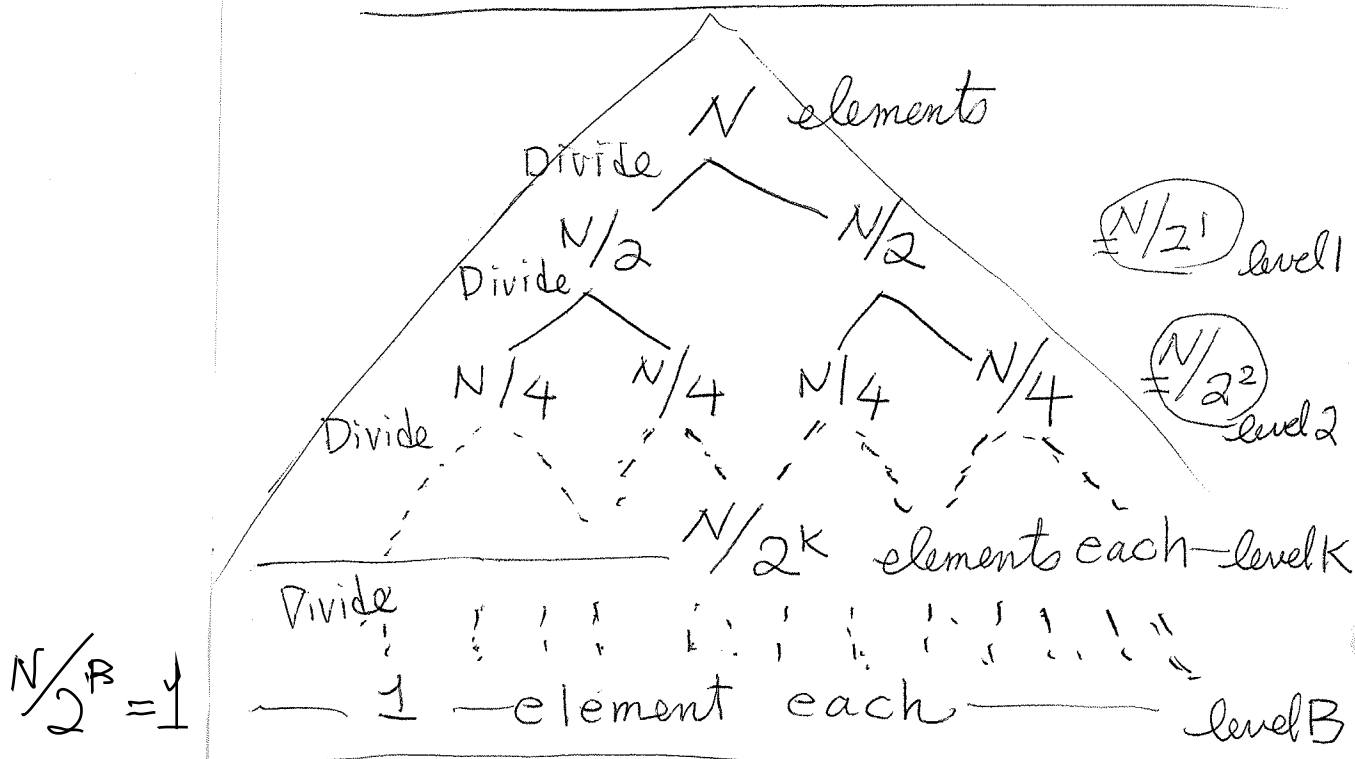 N elements
Divide
N/2 N/2 =N/2¹ level1
Divide
N/4 N/4 N/4 N/4 =N/2² level2
Divide
N/2ᴷ elements each level K
Divide
N/2ᴮ =1 1 element each level B